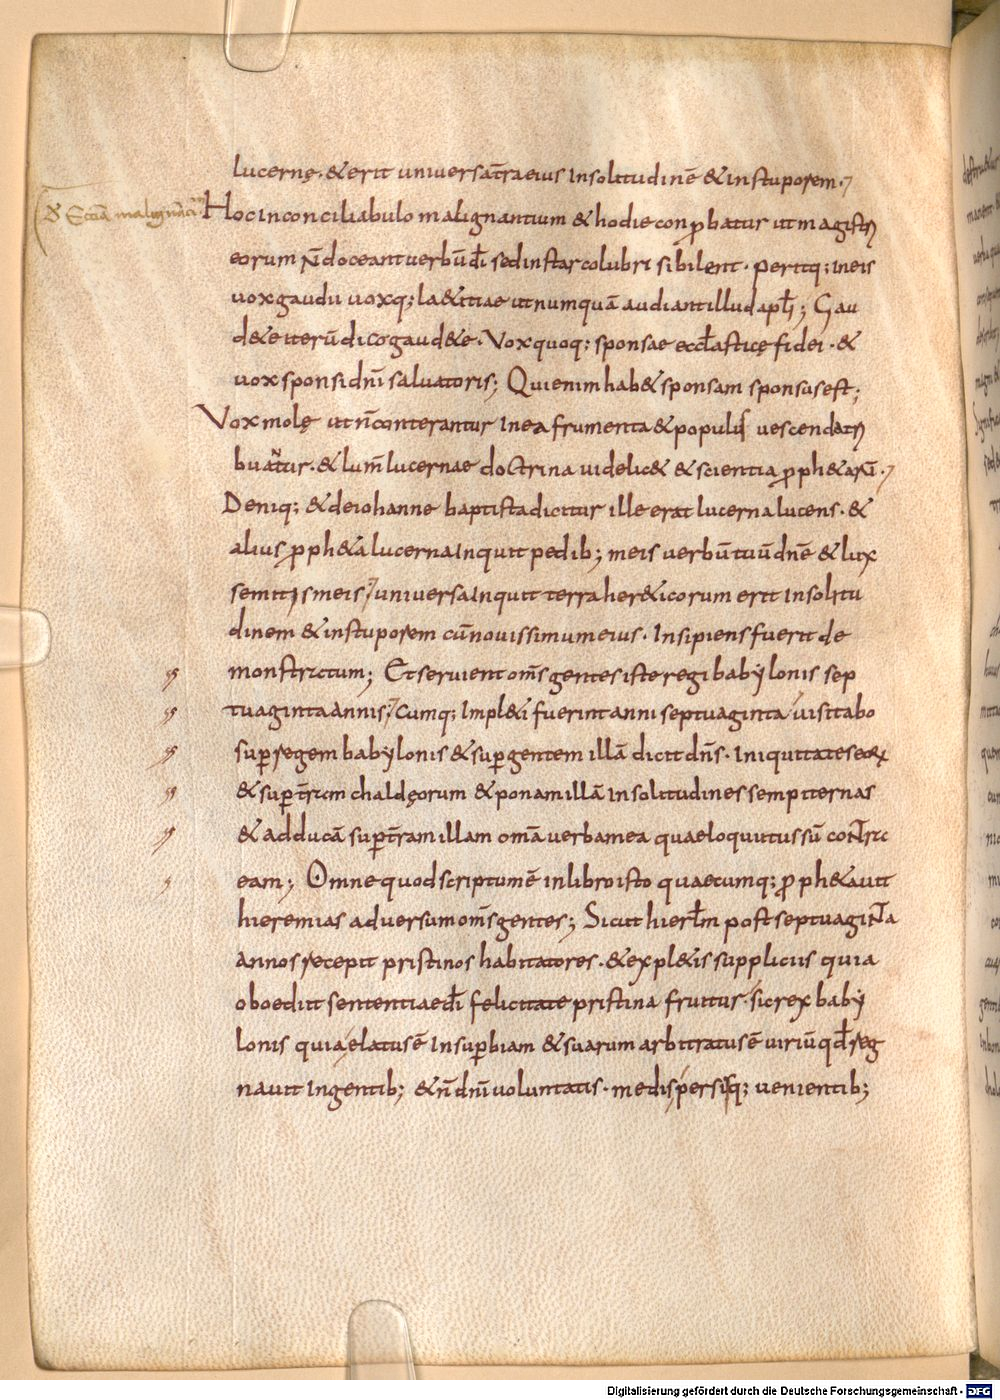 lucernę. &erit universat̄raeius Insolitudinē &instuporem.
Ecclam malignantiū
Hoc Inconciliabulo malignantium &hodie conp̱batur ut magistri
eorum n̄ doceant verbūdī sed instar colubri sibilent. peritq; Ineis
vox gaudii voxq; la&itiae utnumquā audiant illud aplī; Gau
d&e iterū dico gaud&e. Vox quoq; sponsae ecclasticę fidei. &
vox sponsi dn̄i salvatoris; Qui enim hab& sponsam sponsus est;
Vox molę ut n̄ conterantur Inea frumenta & populis vescenda tri
buantur. & lum̄ lucernae doctrina videlic& & scientia p̱ph&arū.
Deniq; & deiohanne baptista dicitur ille erat lucerna lucens. &
alius p̱ph&a lucerna Inquit pedib; meis verbū tuū dn̄e & lux
semitis meis; universa Inquit terra her&icorum erit Insolitu
dinem & instuporem cū novissimum eius. Insipiens fuerit de
monstratum; Et servient om̄s gentes iste regi babylonis sep
tuaginta annis; Cumq; Impl&i fuerint anni septuaginta visitabo
sup̱ regem babylonis & sup̱ gentem illā dicit dn̄s. Iniquitates eorum
& sup̱ t̄ram chaldęorum & ponam illā Insolitudines sempiternas
& adducā sup̱ t̄ram illam om̄a verba mea quae loquutus sū contra
eam; Omne quod scriptum ē in libro isto quaecumq; p̱ph&avit
hieremias adversum om̄s gentes; Sicut hierlm̄ post septuaginta
annos recepit pristinos habitatores. &expl&is suppliciis quia
oboediit sententiae dī felicitate pristina fruitur. sic rex baby
lonis quia elatus ē Insup̱biam & suarum arbitratus ē viriū qd̄ reg
navit Ingentib; & n̄ dn̄i voluntatis. medis persisq; venientib;
Digitalisierung gefördert durch die Deutsche Forschungsgemeinschaft - DFG